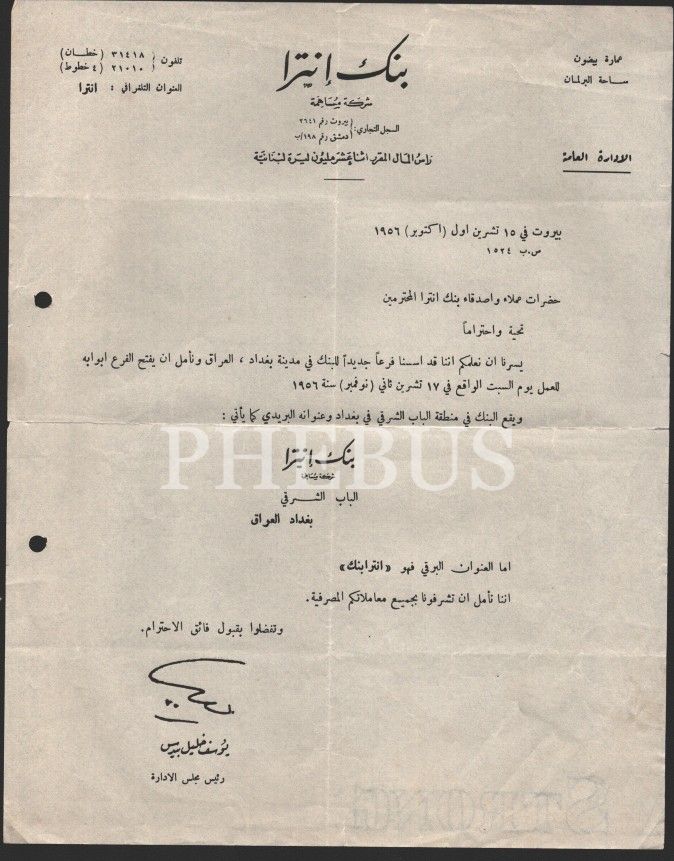 عمارة بيضون
ساحة البرلمان
الادارة العامة
بنك إنترا
شركة مساهمة
السجل التجاري: (بيروت رقم ٢٦٤١
(دمشق رقم ١٩٨/ب
رأس المال المقرر: اثنا عشر مليون ليرة لبنانية
تلفون ( ٣١٤١٨ (خطان)
( ٢١٠١٠ (٤ خطوط)
العنوان التلغرافي : انترا
بيروت في ١٥ تشرين اول (اكتوبر) ١٩٥٦
ص.ب ١٥٢٤
حضرات عملاء واصدقاء بنك انترا المحترمين
تحية واحتراماً
يسرنا ان نعلمكم اننا قد اسسنا فرعاً جديداً للبنك في مدينة بغداد ، العراق ونأمل ان يفتح الفرع ابوابه
للعمل يوم السبت الواقع في ١٧ تشرين ثاني (نوفمبر) سنة ١٩٥٦
ويقع البنك في منطقة الباب الشرقي في بغداد وعنوانه البريدي كما يأتي :
PHEBUS
بنك إنترا
شركة مساهمة
الباب الشرقي
بغداد العراق
اما العنوان البرقي فهو «انترابنك»
اننا نأمل ان تشرفونا بجميع معاملاتكم المصرفية.
وتفضلوا بقبول فائق الاحترام.
يوسف خليل بيدس
رئيس مجلس الادارة